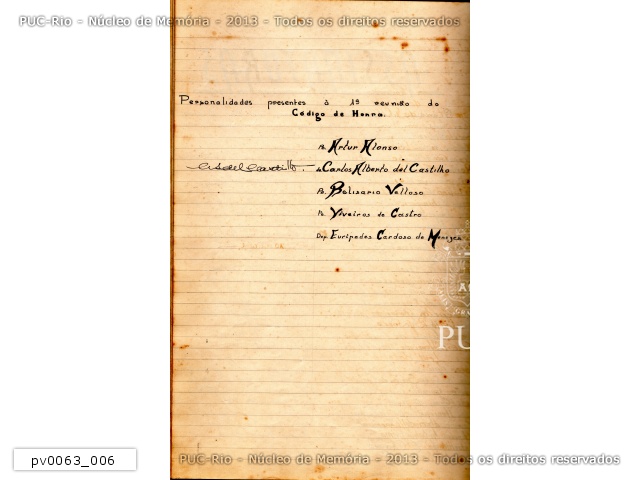 PUC-Rio - Núcleo de Memória - 2013 - Todos os direitos reservados
Personalidades presentes à 1ª reunião do
Código de Honra.
Pe. Artur Alonso
Carlos Alberto del Castilho
Pe. Belisario Velloso
Pe. Viveiros de Castro
Dep. Eurípedes Cardoso de Menezes
PU
pv0063_006
PUC-Rio - Núcleo de Memória - 2013 - Todos os direitos reservados